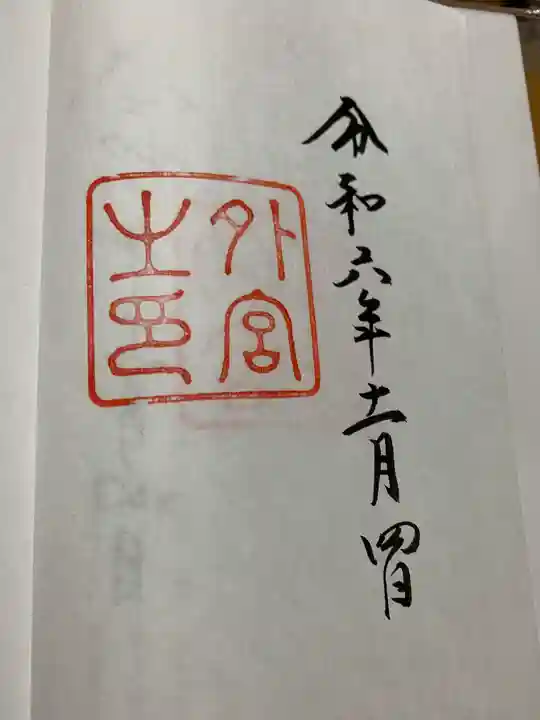 令和六年十一月四日
外宮
之印